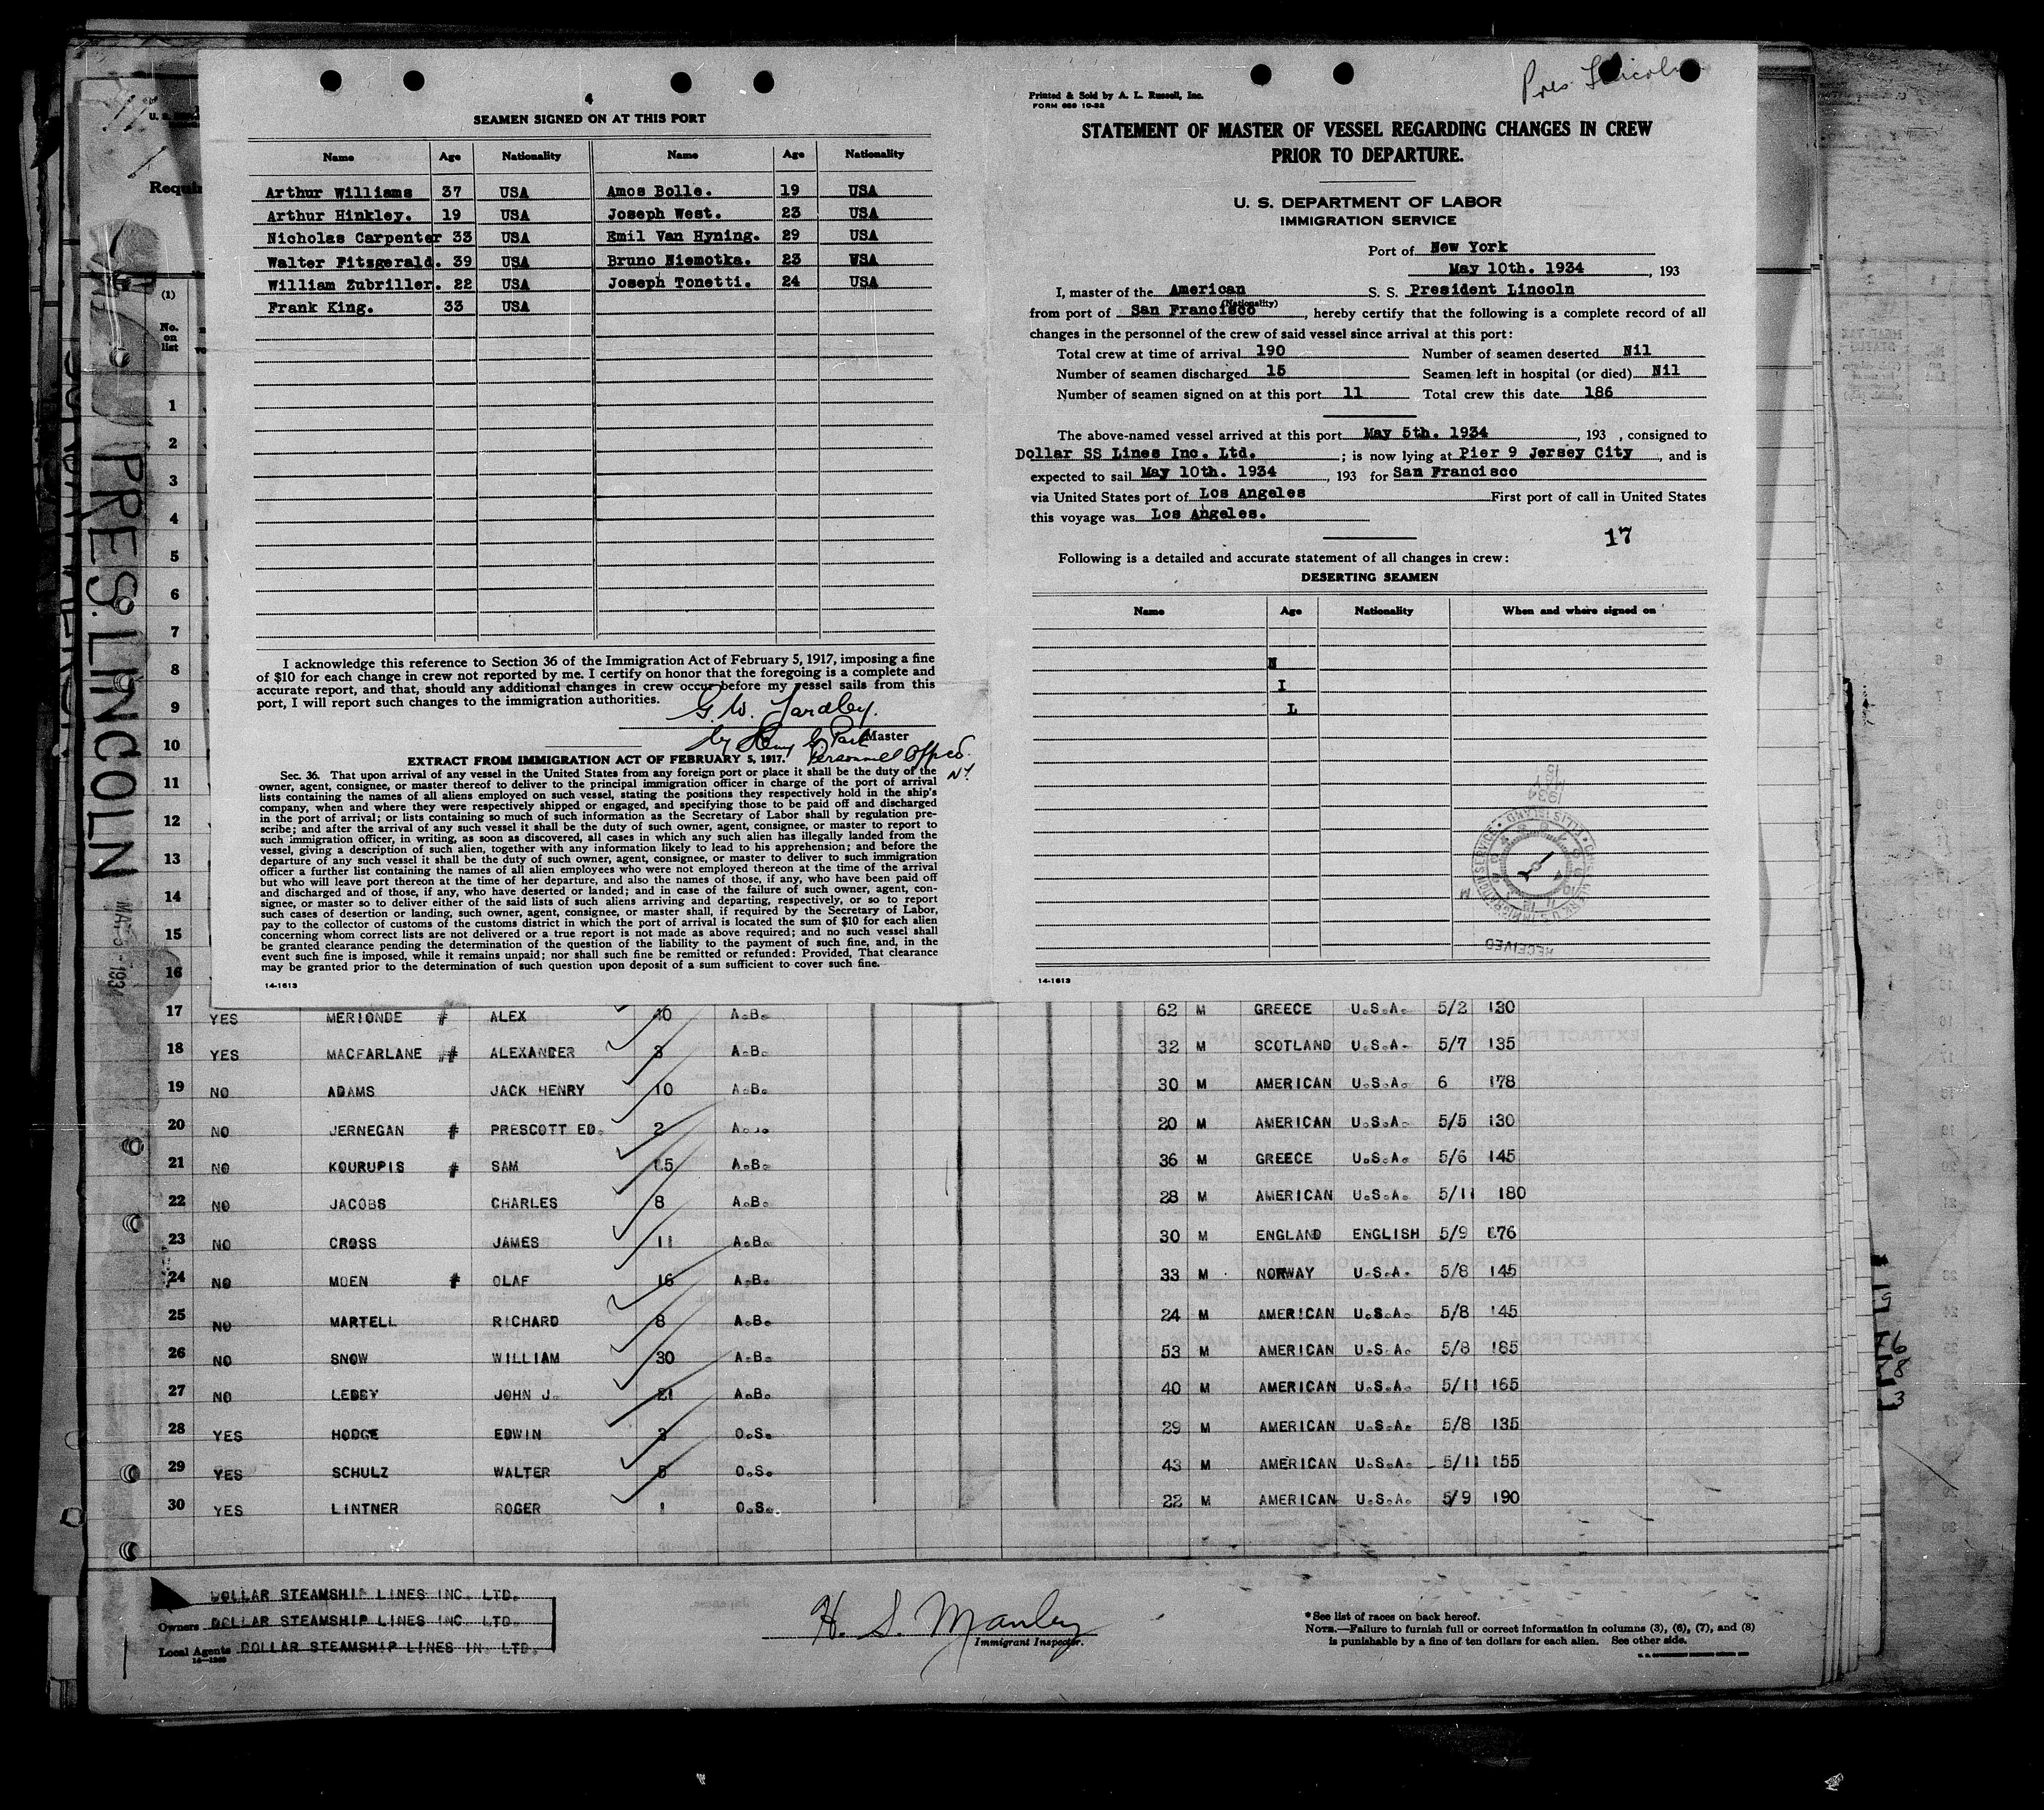 4
SEAMEN SIGNED ON AT THIS PORT
Name Age Nationality Name Age Nationality
Arthur Williams 37 USA Amos Bolle. 19 USA
Arthur Hinkley. 19 USA Joseph West. 23 USA
Nicholas Carpenter 33 USA Emil Van Hyning. 29 USA
Walter Fitsgerald. 39 USA Bruno Niemotka. 23 USA
William Zubriller. 22 USA Joseph Tonetti. 24 USA
Frank King. 33 USA
I acknowledge this reference to Section 36 of the Immigration Act of February 5, 1917, imposing a fine
of $10 for each change in crew not reported by me. I certify on honor that the foregoing is a complete and
accurate report, and that, should any additional changes in crew occur before my vessel sails from this
port, I will report such changes to the immigration authorities.
G. W. Yardley.
Master
by Henry G Park
Personnel Officer
N.Y.
EXTRACT FROM IMMIGRATION ACT OF FEBRUARY 5, 1917.
Sec. 36. That upon arrival of any vessel in the United States from any foreign port or place it shall be the duty of the
owner, agent, consignee, or master thereof to deliver to the principal immigration officer in charge of the port of arrival
lists containing the names of all aliens employed on such vessel, stating the positions they respectively hold in the ship's
company, when and where they were respectively shipped or engaged, and specifying those to be paid off and discharged
in the port of arrival; or lists containing so much of such information as the Secretary of Labor shall by regulation pre-
scribe; and after the arrival of any such vessel it shall be the duty of such owner, agent, consignee, or master to report to
such immigration officer, in writing, as soon as discovered, all cases in which any such alien has illegally landed from the
vessel, giving a description of such alien, together with any information likely to lead to his apprehension; and before the
departure of any such vessel it shall be the duty of such owner, agent, consignee, or master to deliver to such immigration
officer a further list containing the names of all alien employees who were not employed thereon at the time of the arrival
but who will leave port thereon at the time of her departure, and also the names of those, if any, who have been paid off
and discharged and of those, if any, who have deserted or landed; and in case of the failure of such owner, agent, con-
signee, or master so to deliver either of the said lists of such aliens arriving and departing, respectively, or so to report
such cases of desertion or landing, such owner, agent, consignee, or master shall, if required by the Secretary of Labor,
pay to the collector of customs of the customs district in which the port of arrival is located the sum of $10 for each alien
concerning whom correct lists are not delivered or a true report is not made as above required; and no such vessel shall
be granted clearance pending the determination of the question of the liability to the payment of such fine, and, in the
event such fine is imposed, while it remains unpaid; nor shall such fine be remitted or refunded: Provided, That clearance
may be granted prior to the determination of such question upon deposit of a sum sufficient to cover such fine.
14-1613
Pres. Lincoln
Printed & Sold by A. L. Russell, Inc.
FORM 689 10-32
STATEMENT OF MASTER OF VESSEL REGARDING CHANGES IN CREW
PRIOR TO DEPARTURE.
U. S. DEPARTMENT OF LABOR
IMMIGRATION SERVICE
Port of New York
May 10th. 1934, 193
I, master of the American S. S. President Lincoln
(Nationality)
from port of San Francisco, hereby certify that the following is a complete record of all
changes in the personnel of the crew of said vessel since arrival at this port:
Total crew at time of arrival 190 Number of seamen deserted Nil
Number of seamen discharged 15 Seamen left in hospital (or died) Nil
Number of seamen signed on at this port 11 Total crew this date 186
The above-named vessel arrived at this port May 5th. 1934, 193 , consigned to
Dollar SS Lines Inc. Ltd. ; is now lying at Pier 9 Jersey City, and is
expected to sail May 10th. 1934, 193 for San Francisco
via United States port of Los Angeles First port of call in United States
this voyage was Los Angeles.
17
Following is a detailed and accurate statement of all changes in crew:
DESERTING SEAMEN
Name Age Nationality When and where signed on
N
I
L
RECEIVED
14-1613
PRES. LINCOLN
MAY 5 - 1934
(1)
No.
on
list
1
2
3
4
5
6
7
8
9
10
11
12
13
14
15
16
17 YES MERIONDE # ALEX 40 A.B. 62 M GREECE U.S.A. 5/2 130
18 YES MACFARLANE # ALEXANDER 3 A.B. 32 M SCOTLAND U.S.A. 5/7 135
19 NO ADAMS JACK HENRY 10 A.B. 30 M AMERICAN U.S.A. 6 178
20 NO JERNEGAN # PRESCOTT ED. 2 20 M AMERICAN U.S.A. 5/5 130
21 NO KOURUPIS # SAM 15 A.B. 36 M GREECE U.S.A. 5/6 145
22 NO JACOBS CHARLES 8 A.B. 28 M AMERICAN U.S.A. 5/11 180
23 NO CROSS JAMES 11 A.B. 30 M ENGLAND ENGLISH 5/9 176
24 NO MOEN # OLAF 16 A.B. 33 M NORWAY U.S.A. 5/8 145
25 NO MARTELL RICHARD 8 A.B. 24 M AMERICAN U.S.A. 5/8 145
26 NO SNOW WILLIAM 30 A.B. 53 M AMERICAN U.S.A. 5/8 185
27 NO JOHN J. 21 A.B. 40 M AMERICAN U.S.A. 5/11 165
28 YES HODGE EDWIN 3 O.S. 29 M AMERICAN U.S.A. 5/8 135
29 YES SCHULZ WALTER 5 O.S. 43 M AMERICAN U.S.A. 5/11 155
30 YES LINTNER ROGER 1 O.S. 22 M AMERICAN U.S.A. 5/9 190
DOLLAR STEAMSHIP LINES INC. LTD.
Owners DOLLAR STEAMSHIP LINES INC. LTD.
Local Agents DOLLAR STEAMSHIP LINES IN. LTD.
H. S. Manley
Immigrant Inspector.
*See list of races on back hereof.
NOTE.—Failure to furnish full or correct information in columns (3), (6), (7), and (8)
is punishable by a fine of ten dollars for each alien. See other side.